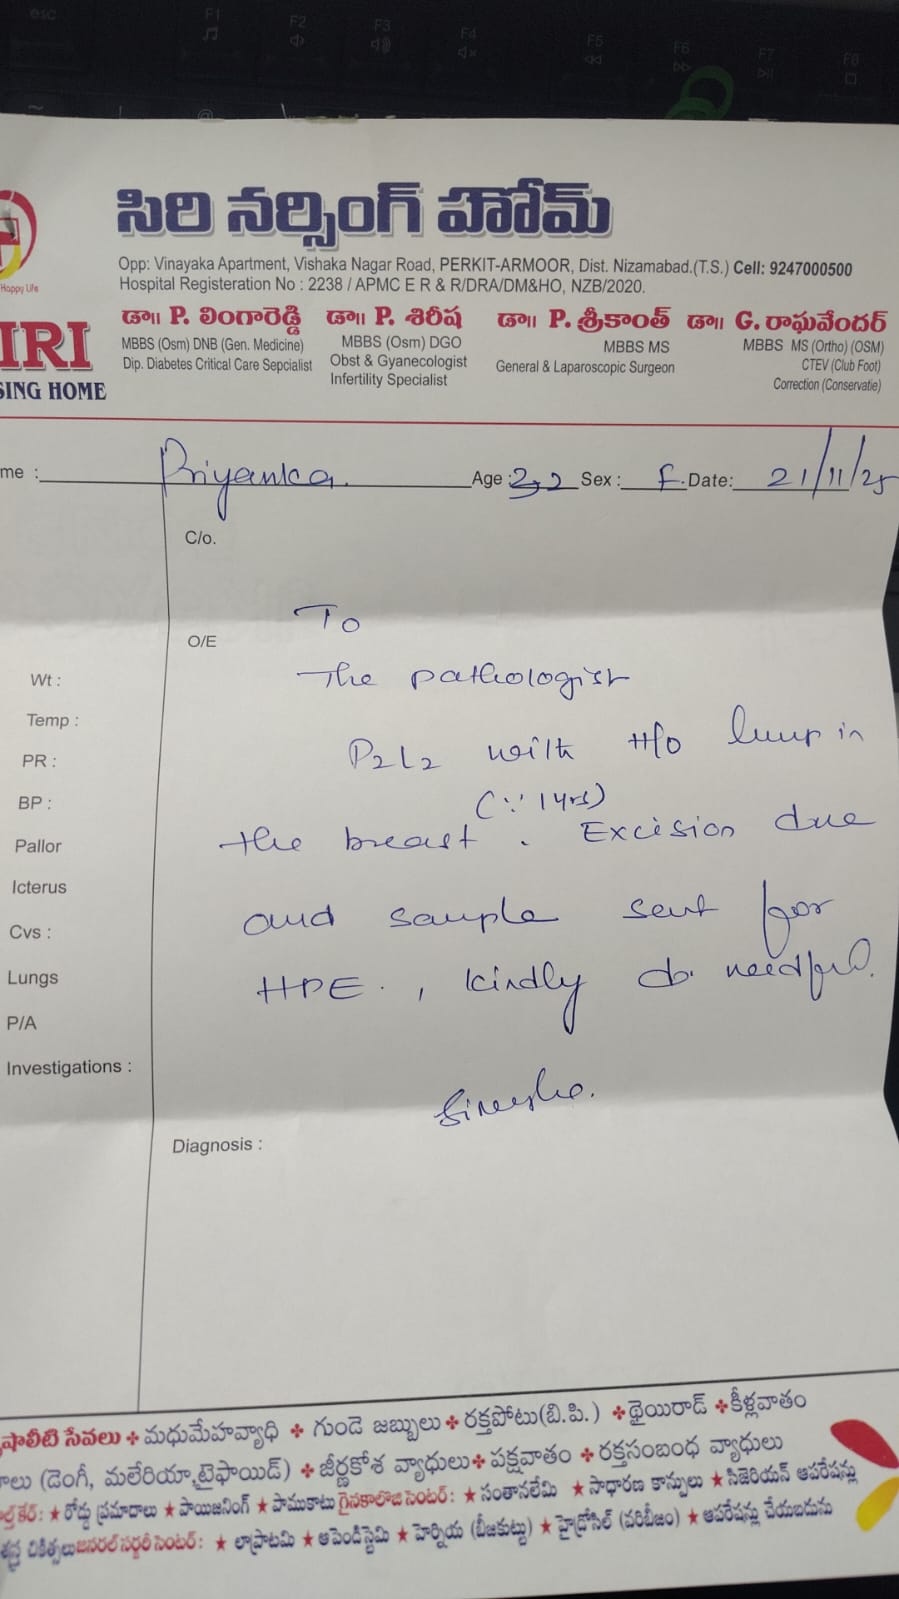 esc F1 F2 F3 F4 F5 F6 F7 F8
~ @
సిరి నర్సింగ్ హోమ్
Opp: Vinayaka Apartment, Vishaka Nagar Road, PERKIT-ARMOOR, Dist. Nizamabad.(T.S.) Cell: 9247000500
Happy Life
Hospital Registeration No : 2238 / APMC E R & R/DRA/DM&HO, NZB/2020.
IRI
SING HOME
డా॥ P. లింగారెడ్డి
MBBS (Osm) DNB (Gen. Medicine)
Dip. Diabetes Critical Care Sepcialist
డా॥ P. శిరీష
MBBS (Osm) DGO
Obst & Gyanecologist
Infertility Specialist
డా॥ P. శ్రీకాంత్
MBBS MS
General & Laparoscopic Surgeon
డా॥ G. రాఘవేందర్
MBBS MS (Ortho) (OSM)
CTEV (Club Foot)
Correction (Conservatie)
me : Priyanka. Age : 32 Sex : F. Date: 21/11/25
C/o.
To
O/E
The pathologist
Wt :
Temp :
P2L2 with H/o lump in
PR :
(∵ 1 yrs)
BP :
the breast . Excision due
Pallor
Icterus
and sample sent for
Cvs :
Lungs
HPE . , kindly do needful.
P/A
Investigations :
Diagnosis :
షాలిటి సేవలు ❖ మధుమేహవ్యాధి ❖ గుండె జబ్బులు ❖ రక్తపోటు(బి.పి.) ❖ థైయిరాడ్ ❖ కీళ్లవాతం
రాలు (డెంగీ, మలేరియా,టైఫాయిడ్) ❖ జీర్ణకోశ వ్యాధులు ❖ పక్షవాతం ❖ రక్తసంబంధ వ్యాధులు
కేర్: ★ రోడ్డు ప్రమాదాలు ★ పాయిజనింగ్ ★ పాముకాటు గైనకాలోజి సెంటర్: ★ సంతానలేమి ★ సాధారణ కాన్పులు ★ సిజెరియన్ ఆపరేషన్లు
శస్త్ర చికిత్సలు జనరల్ సర్జరీ సెంటర్: ★ లాప్రాటమి ★ అపెండిస్టెమి ★ హెర్నియ (బీజకుట్టు) ★ హైడ్రోసిల్ (వరిబీజం) ★ ఆపరేషన్లు చేయబడును